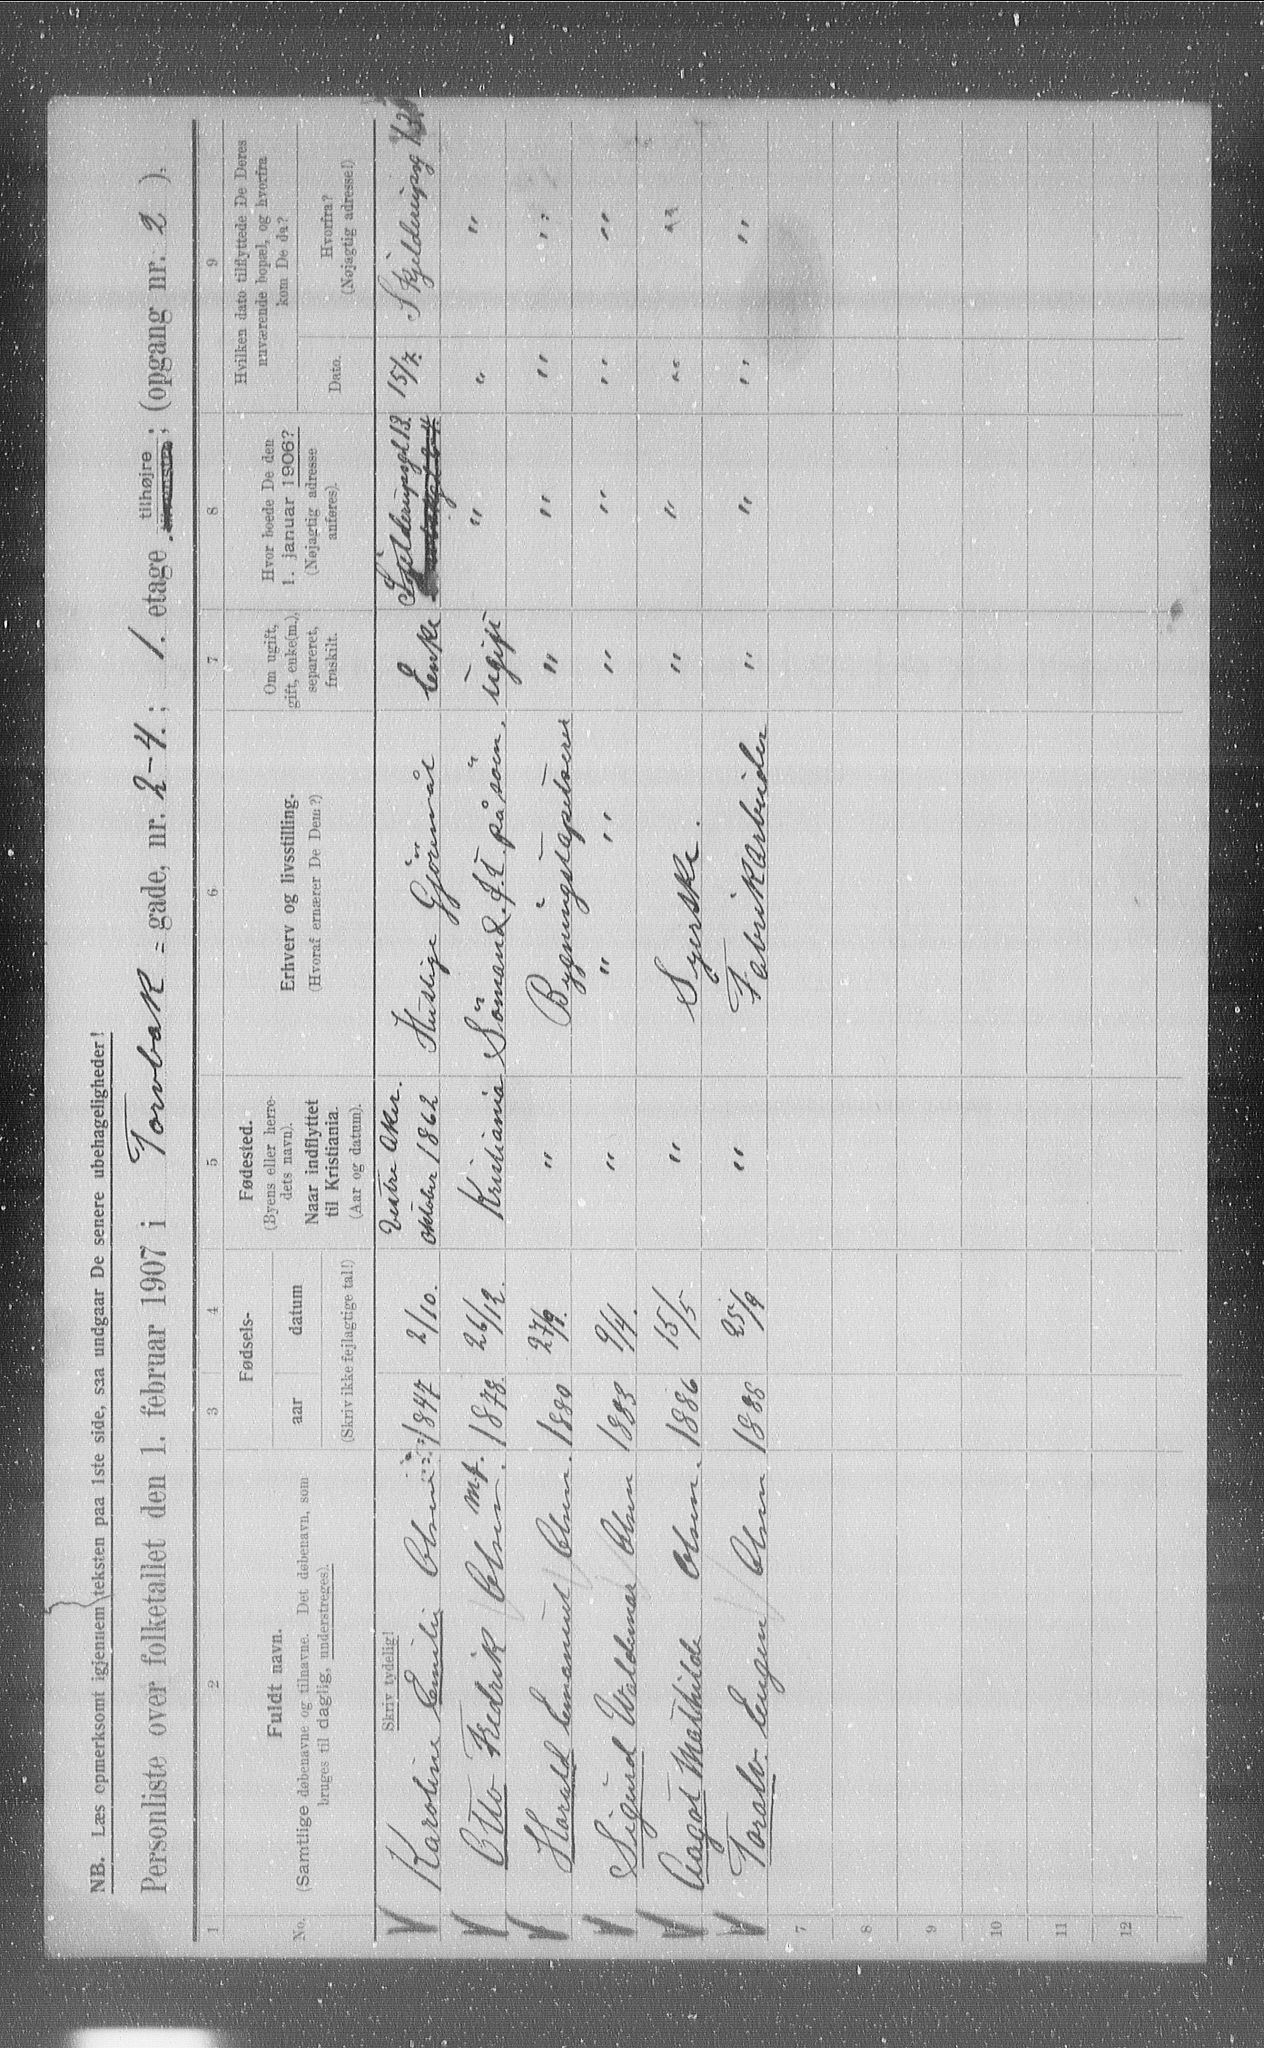 NB. Læs opmerksomt igjennem teksten paa 1ste side, saa undgaar De senere ubehageligheder!
Personliste over folketallet den 1. februar 1907 i Torvbak = gade, nr. 2-4.; 1. etage tilhøjre; (opgang nr. 2).
1 2 3 4 5 6 7 8 9
No.
Fuldt navn.
(Samtlige døbenavne og tilnavne. Det døbenavn, som
bruges til daglig, understreges).
Fødsels-
aar datum
(Skriv ikke fejlagtige tal!)
Fødested.
(Byens eller herre-
dets navn).
Naar indflyttet
til Kristiania.
(Aar og datum).
Erhverv og livsstilling.
(Hvoraf ernærer De Dem?)
Om ugift,
gift, enke(m.),
separeret,
fraskilt.
Hvor boede De den
1. januar 1906?
(Nøjagtig adresse
anføres).
Hvilken dato tilflyttede De Deres
nuværende bopæl, og hvorfra
kom De da?
Dato.
Hvorfra?
(Nøjagtig adresse!)
Skriv tydelig!
Karoline Emilie Olsen 1847 2/10. Vestre Aker. oktober 1862 Huslige Gjöremål Enke 15/7.
Otto Fredrik Olsen. m.f. 1878. 26/12. Kristiania Sömand f.t. på söen. ugift " " "
Harald Emanuel Olsen. 1880 27/9. " Bygningstapetserer " " " "
Sigurd Waldemar Olsen 1883 9/4. " " " " " " "
Aagot Mathilde Olsen. 1886 15/5 " Syerske. " " " "
Toralv. Eugen Olsen 1888 25/9 " Fabrikarbeider " " " "
7
8
9
10
11
12